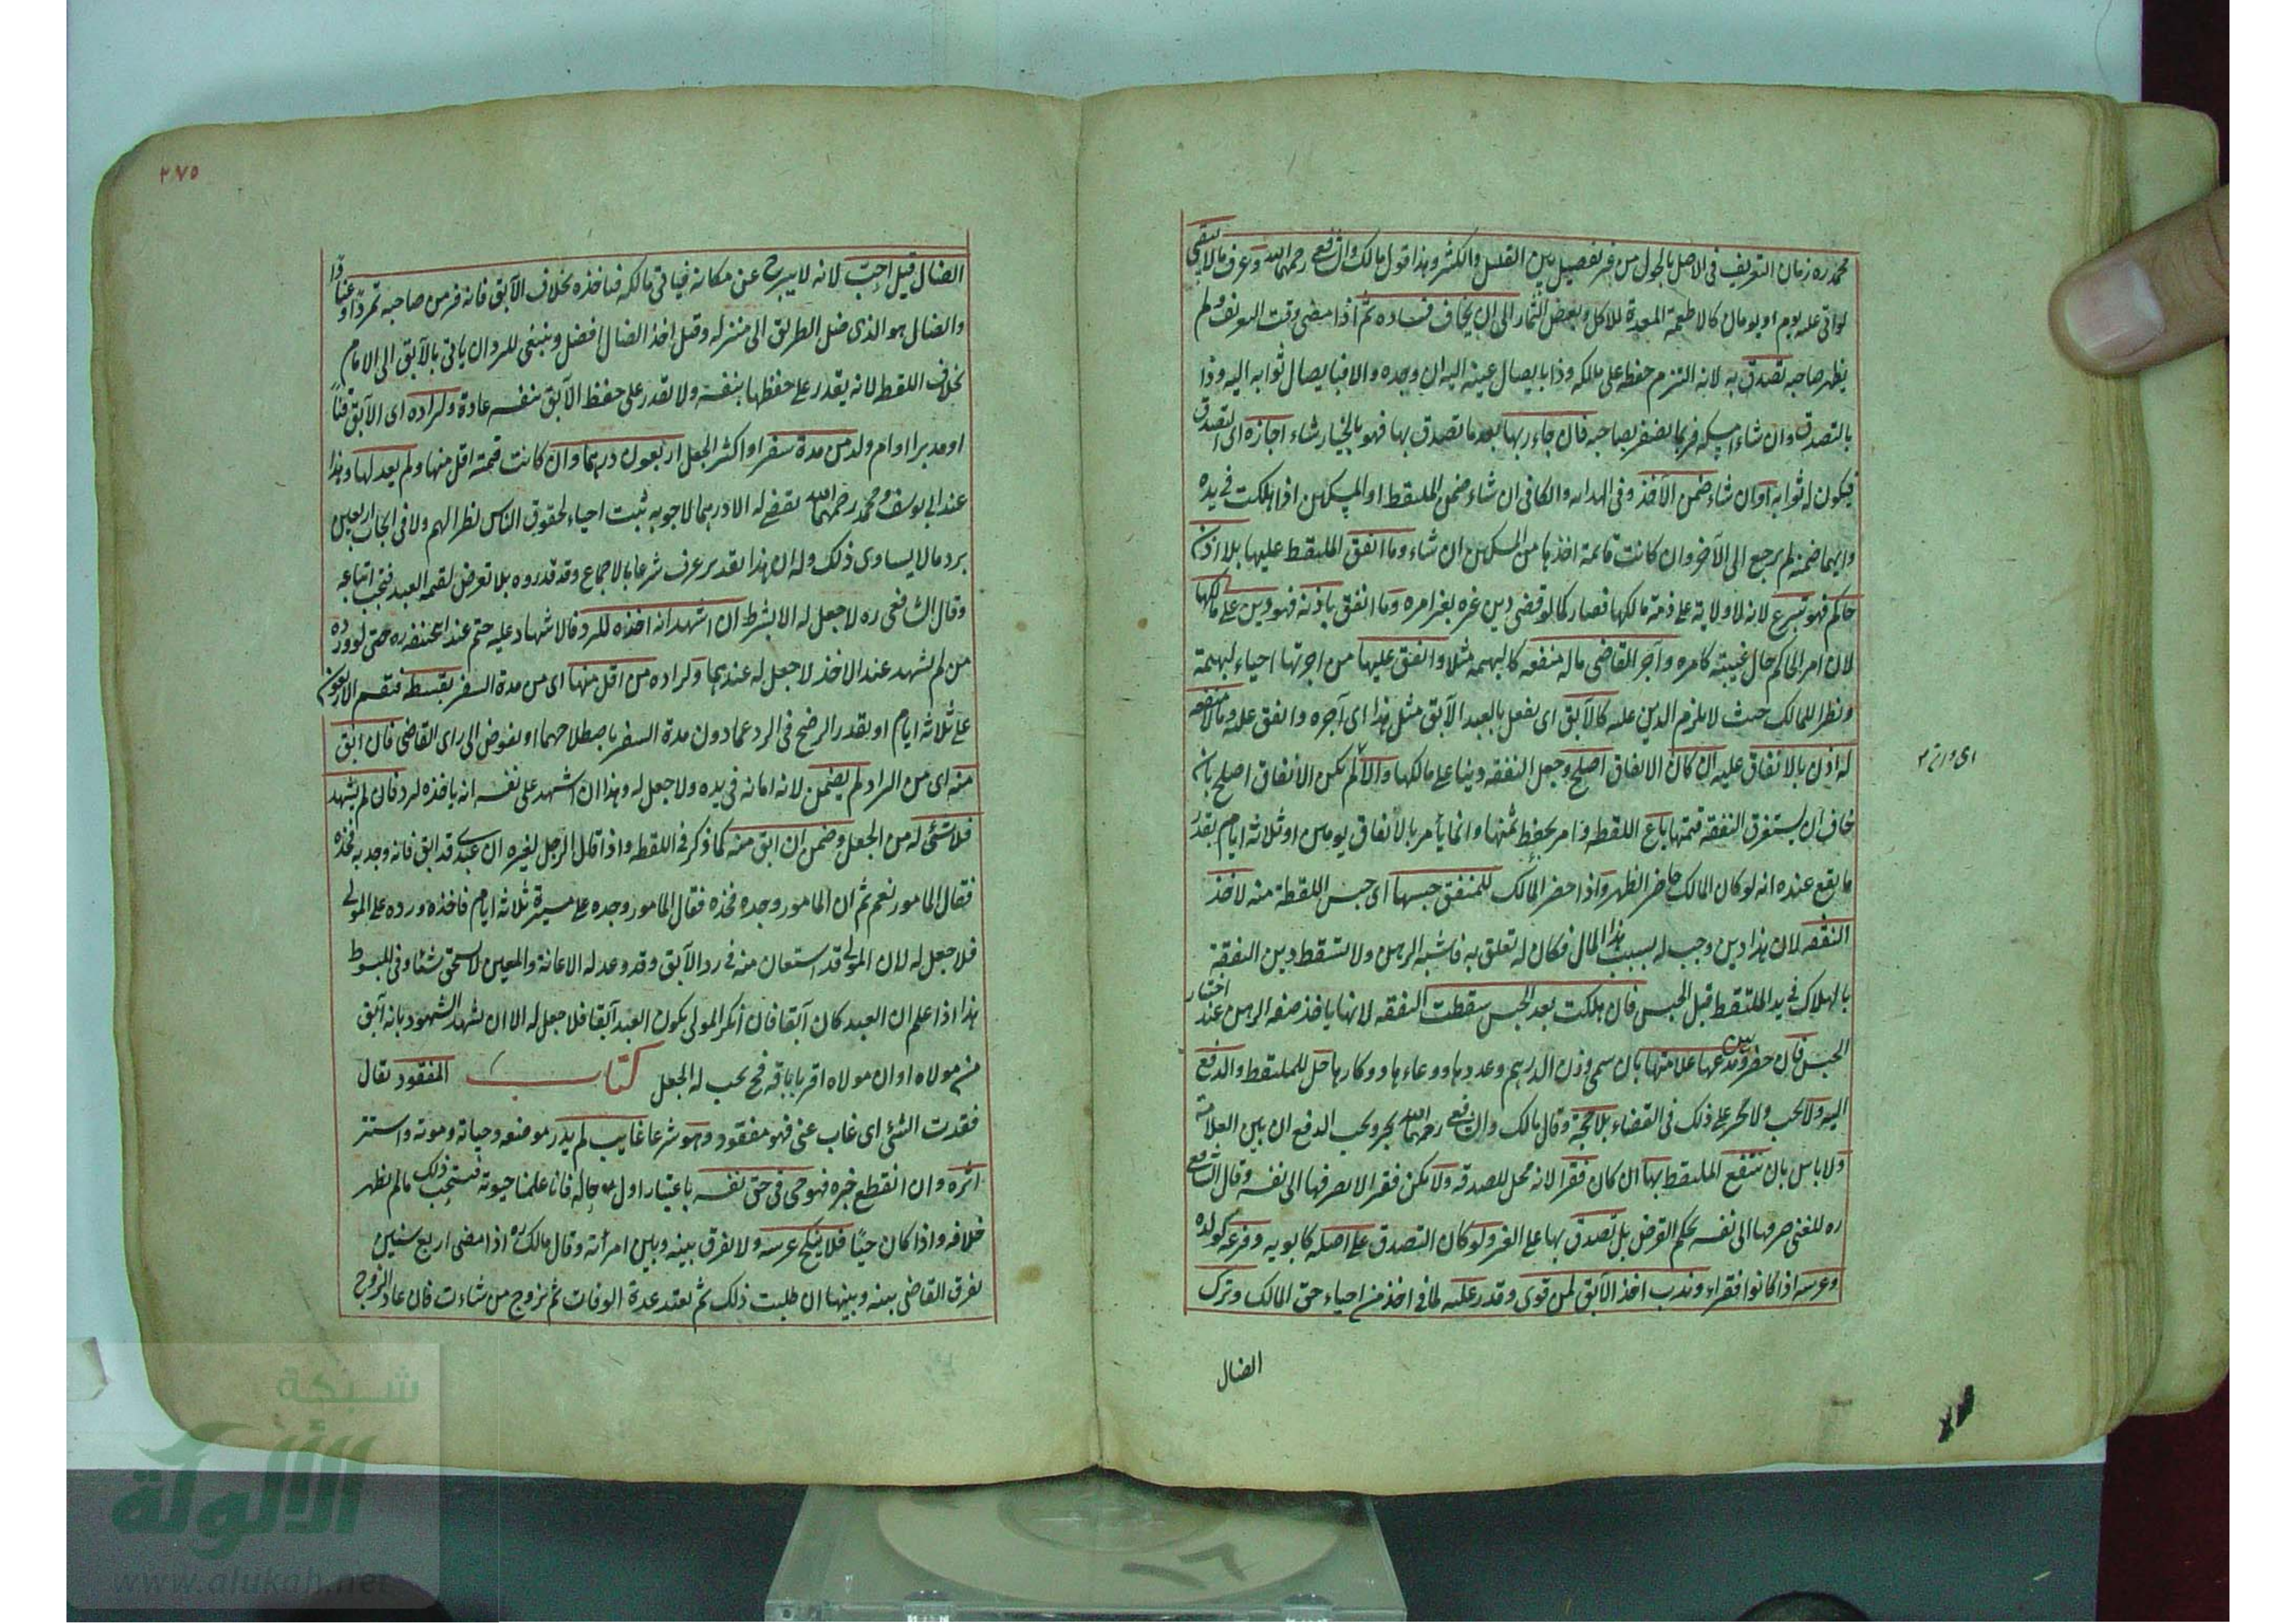 محمد ره زمان التعريف فى الاصل بالحول من غير تفصيل بين القليل والكثير وهذا قول مالك والشافعى رحمهما الله وعرف ما لا يبقى
لو اتى عليه يوم او يومان كالاطعمة المعدة للاكل وبعض الثمار الى ان يخاف فساده ثم اذا مضى وقت التعريف ولم
يظهر صاحبه تصدق به لانه التزم حفظه على مالكه وذا بايصال عينه اليه ان وجده والا فبايصال ثوابه اليه وذا
بالتصدق وان شاء امسكه فربما يضفر بصاحبه فان جاء ربها بعد ما تصدق بها فهو بالخيار شاء اجازه اى التصدق
فيكون له ثوابه او ان شاء ضمن الآخذ وفى الهدايه والكافى ان شاء ضمن الملتقط او المسكين اذا هلكت فى يده
وايهما ضمنه لم يرجع الى الآخر وان كانت قائمة اخذها من المسكين ان شاء وما انفق الملتقط عليها بلا اذن
حاكم فهو تبرع لانه لا ولاية على ذمة مالكها فصار كما لو قضى دين غيره بغير امره وما انفق باذنه فهو دين على مالكها
لان امر الحاكم حال غيبته كامره وآجر القاضى ماله منفعه كالبهيمه مثلا وانفق عليها من اجرتها احياء لبهيمة
ونظرا للمالك حيث لا يلزم الدين عليه كالآبق اى يفعل بالعبد الآبق مثل هذا اى آجره وانفق عليه وما لا منفعه
له اذن بالانفاق عليه ان كان الانفاق اصلح وجعل النفقه دينا على مالكها والا لم يكن الانفاق اصلح بان
خاف ان يستغرق النفقه قيمتها باع اللقطه وامر بحفظ ثمنها وانما يأمر بالانفاق يومين او ثلاثة ايام بقدر
ما يقع عنده انه لو كان المالك حاضر الظهر واذا حضر المالك للمنفق حبسها اى حبس اللقطة منه لاخذ
النفقه لان هذا دين وجب له بسبب هذا المال فكان له تعلق به فاشبه الرهن ولا تسقط دين النفقة
بالهلاك فى يد الملتقط قبل الحبس فان هلكت بعد الحبس سقطت النفقه لانها ياخذ صفه الرهن عند اختيار
الحبس فان حضر وبين مدعيها علامتها بان سمى وزن الدراهم وعددها ووعاءها ووكاءها حل للملتقط والدفع
اليه ولا يجب ولا يجبر على ذلك فى القضاء بلا حجة وقال مالك والشافعى رحمهما الله يجبر ويجب الدفع ان بين العلامة
ولا باس بان ينتفع الملتقط بها ان كان فقيرا لانه محل للصدقه ولا يكن فقيرا لا يصرفها الى نفسه وقال الشافعى
ره للغنى صرفها الى نفسه بحكم القرض بل تصدق بها على الغير ولو كان التصدق على اصله كابويه وفرعه كولده
وعرسه اذا كانوا فقراء وندب اخذ الآبق لمن قوى وقدر عليه لما فى اخذ من احياء حق المالك وترك
اى وان م
الضال
٢٧٥
الضال قيل احب لانه لا يبرح عن مكانه فياتى مالكه فياخذه بخلاف الآبق فانه فر من صاحبه تمردا وعنادا
والضال هو الذى ضل الطريق الى منزله وقيل اخذ الضال افضل وينبغى للراد ان ياتى بالآبق الى الامام
بخلاف اللقط لانه يقدر على حفظها بنفسه ولا يقدر على حفظ الآبق بنفسه عادة ولراده اى الآبق قنا
او مدبرا او ام ولد من مدة سفر او اكثر الجعل اربعون درهما وان كانت قيمته اقل منها ولم يعدلها وهذا
عند ابى يوسف ومحمد رحمهما الله يقضى له الا درهما لا جوبه ثبت احياء لحقوق الناس نظرا لهم ولا فى ايجاب اربعين
برد ما لا يساوى ذلك وله ان هذا تقدير عرف شرعا بالاجماع وقد قدروه بلا تعرض لقيمه العبد فيجب اتباعه
وقال الشافعى ره لا جعل له الا بشرط ان اشهد انه اخذه للرد فالاشهاد عليه حتم عند ابى حنيفه ره حتى لو رده
من لم يشهد عند الاخذ لا جعل له عندهما ولراده من اقل منها اى من مدة السفر بقسطه فتقسم الاربعون
على ثلاثه ايام او بقدر الرضخ فى الرد عما دون مدة السفر باصطلاحهما او يفوض الى راى القاضى فان ابق
منه اى من الراد لم يضمن لانه امانه فى يده ولا جعل له وهذا ان اشهد على نفسه انه ياخذه لرد فان لم يشهد
فلا شئ له من الجعل وضمن ان ابق منه كما ذكر فى اللقطه واذا قال الرجل لغيره ان عبدى قد ابق فانه وجد به فخذه
فقال المامور نعم ثم ان المامور وجده فخذه فقال المامور وجده على مسيرة ثلاثه ايام فاخذه ورده على المولى
فلا جعل له لان المولى قد استعان منه فى رد الآبق وقد وعد له الاعانة والمعين لا يستحق شئا وفى المبسوط
هذا اذا علم ان العبد كان آبقا فان انكر المولى بكون العبد آبقا فلا جعل له الا ان يشهد الشهود بانه آبق
من مولاه او ان مولاه اقر باباقه فح يجب له الجعل كتاب المفقود يقال
فقدت الشئ اى غاب عنى فهو مفقود وهو شرعا غايب لم يدر موضعه وحياته وموته واستتر
اثره وان انقطع خبره فهو حى فى حق نفسه باعتبار اول حاله فانا علمنا حيوته فيستحب ذلك ما لم يظهر
خلافه واذا كان حيا فلا ينكح عرسه ولا يفرق بينه وبين امرأته وقال مالك ره اذا مضى اربع سنين
يفرق القاضى بينه وبينها ان طلبت ذلك ثم تعتد عدة الوفات ثم تزوج من شاءت فان عاد الزوج
شبكة
الألوكة
www.alukah.net